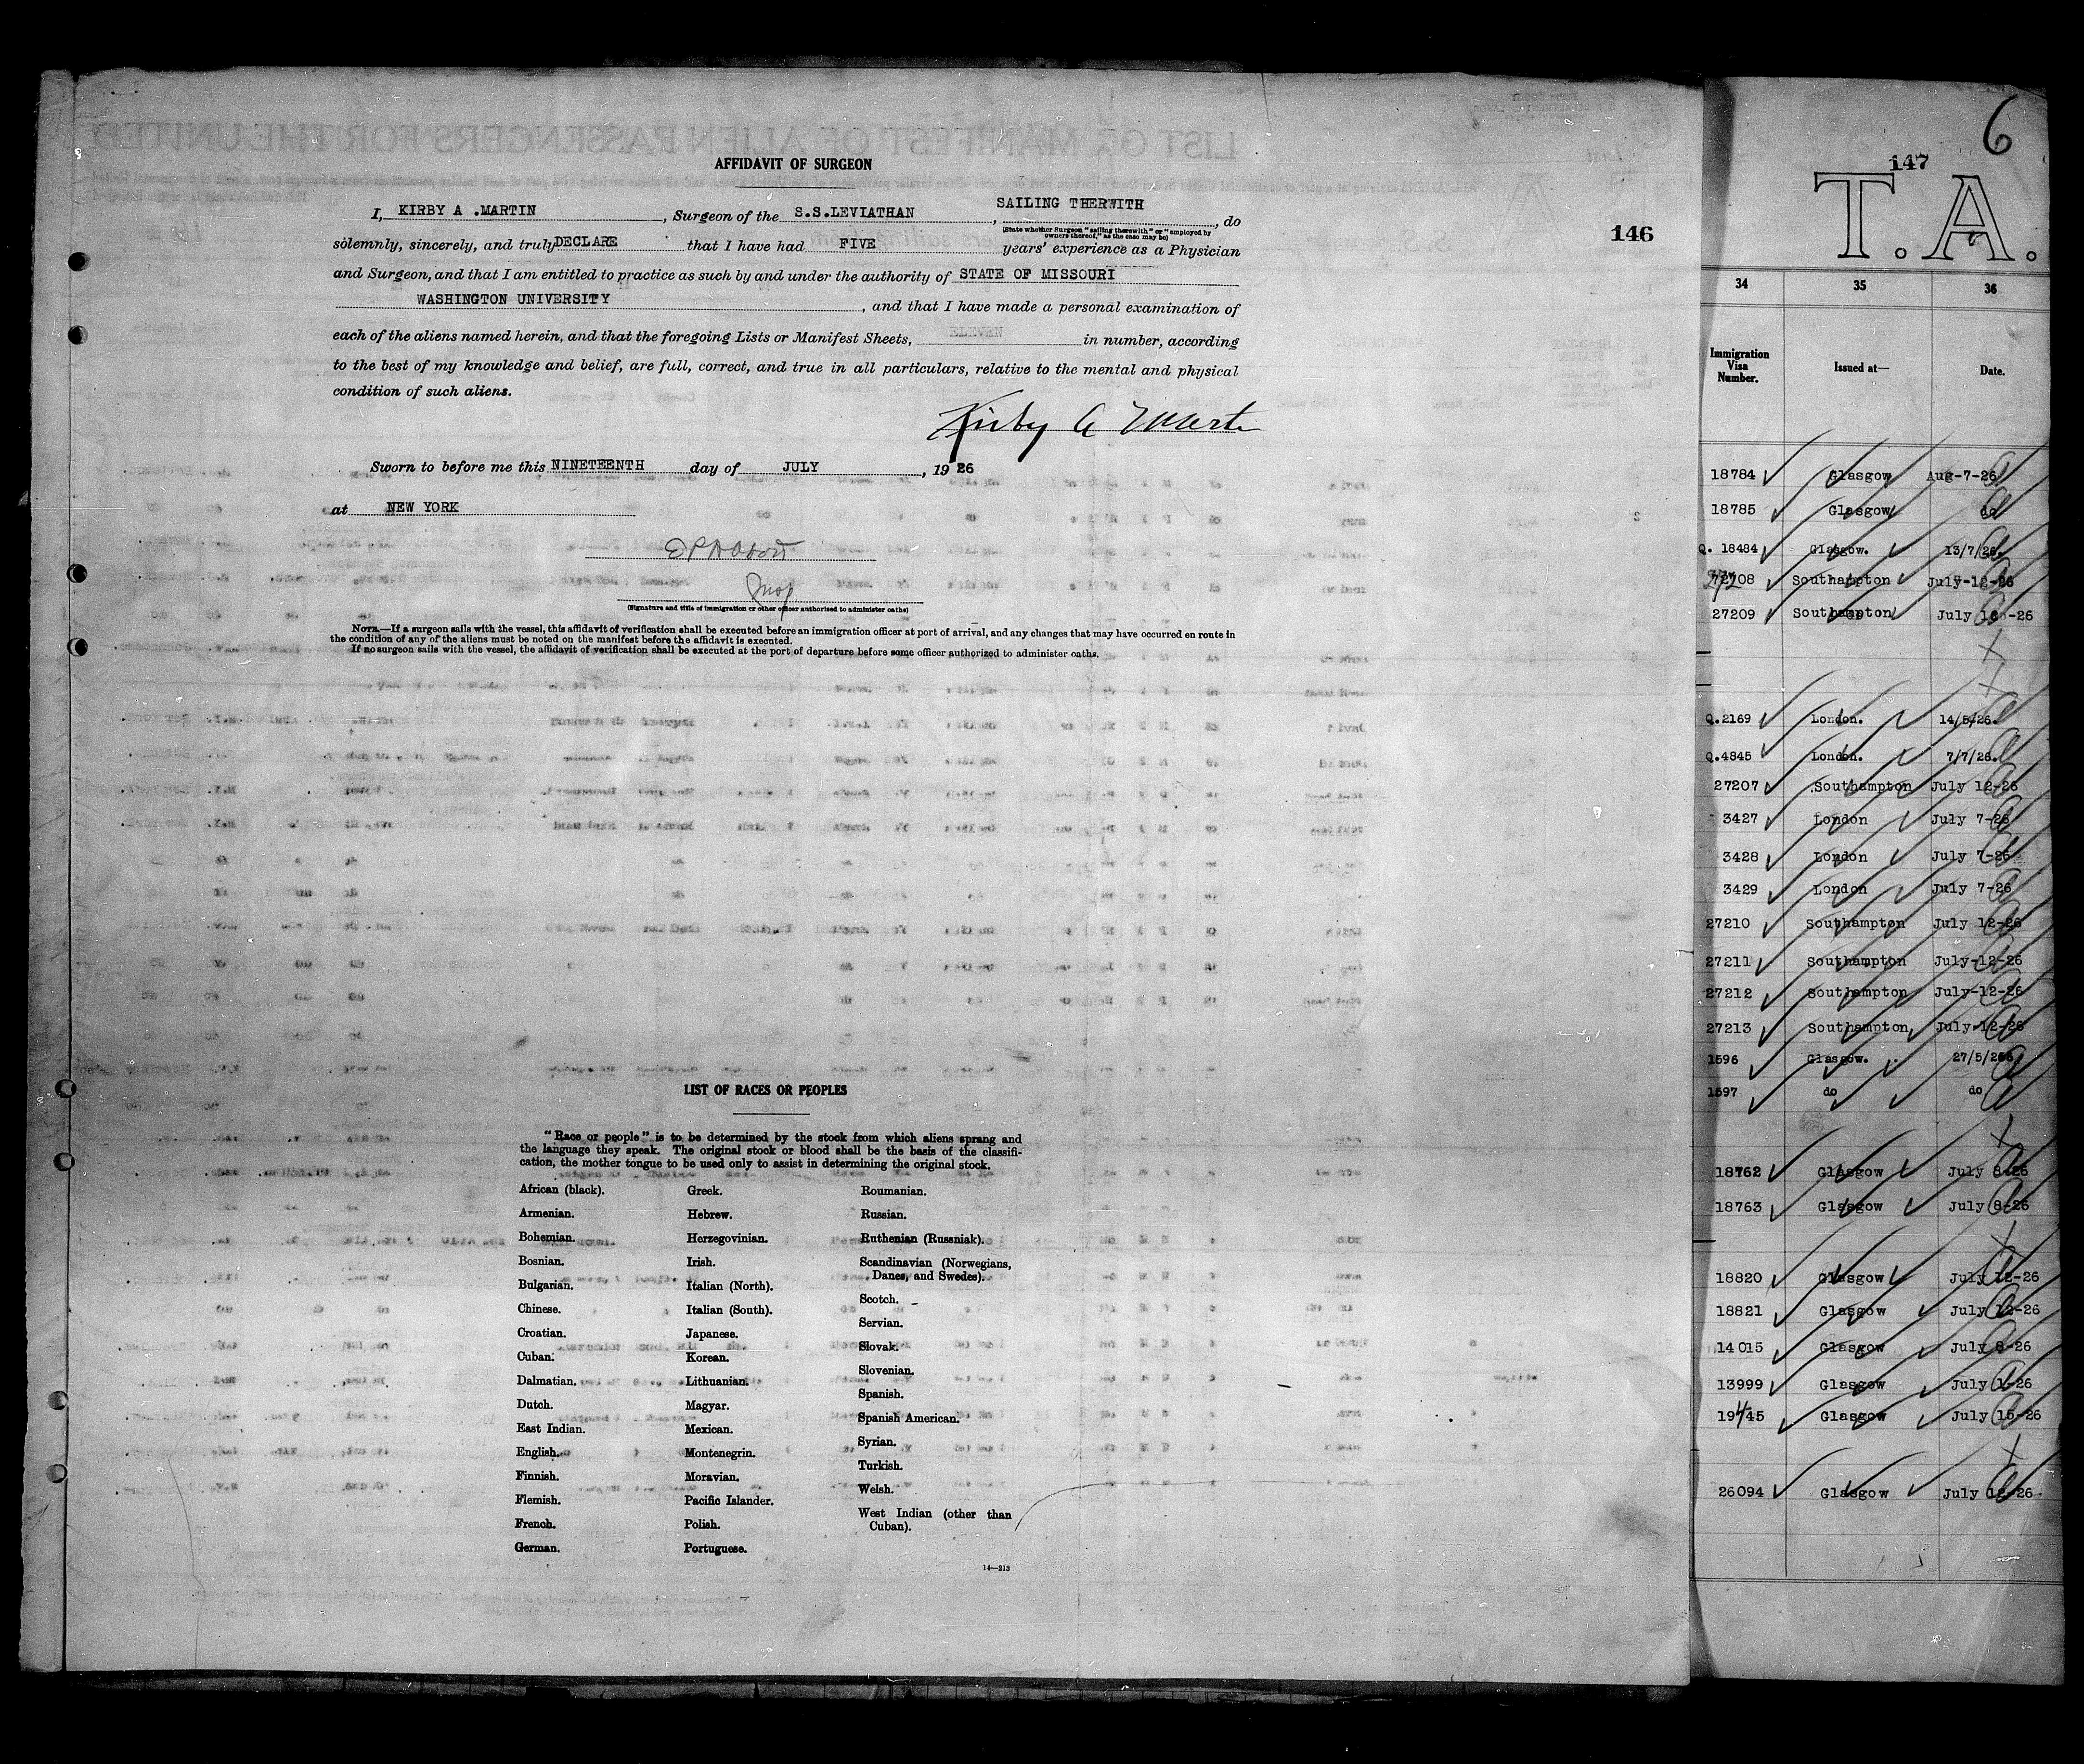 AFFIDAVIT OF SURGEON
I, KIRBY A .MARTIN, Surgeon of the S.S.LEVIATHAN, SAILING THERWITH, do
(State whether Surgeon "sailing therewith" or "employed by
owners thereof," as the case may be)
solemnly, sincerely, and truly DECLARE that I have had FIVE years' experience as a Physician
and Surgeon, and that I am entitled to practice as such by and under the authority of STATE OF MISSOURI
WASHINGTON UNIVERSITY, and that I have made a personal examination of
each of the aliens named herein, and that the foregoing Lists or Manifest Sheets, ELEVEN in number, according
to the best of my knowledge and belief, are full, correct, and true in all particulars, relative to the mental and physical
condition of such aliens.
Kirby A Martin
Sworn to before me this NINETEENTH day of JULY, 1926
at NEW YORK
Insp
(Signature and title of immigration or other officer authorized to administer oaths)
NOTE.—If a surgeon sails with the vessel, this affidavit of verification shall be executed before an immigration officer at port of arrival, and any changes that may have occurred en route in
the condition of any of the aliens must be noted on the manifest before the affidavit is executed.
If no surgeon sails with the vessel, the affidavit of verification shall be executed at the port of departure before some officer authorized to administer oaths.
146
LIST OF RACES OR PEOPLES
"Race or people" is to be determined by the stock from which aliens sprang and
the language they speak. The original stock or blood shall be the basis of the classifi-
cation, the mother tongue to be used only to assist in determining the original stock.
African (black).
Armenian.
Bohemian.
Bosnian.
Bulgarian.
Chinese.
Croatian.
Cuban.
Dalmatian.
Dutch.
East Indian.
English.
Finnish.
Flemish.
French.
German.
Greek.
Hebrew.
Herzegovinian.
Irish.
Italian (North).
Italian (South).
Japanese.
Korean.
Lithuanian.
Magyar.
Mexican.
Montenegrin.
Moravian.
Pacific Islander.
Polish.
Portuguese.
Roumanian.
Russian.
Ruthenian (Russniak).
Scandinavian (Norwegians,
Danes, and Swedes).
Scotch.
Servian.
Slovak.
Slovenian.
Spanish.
Spanish American.
Syrian.
Turkish.
Welsh.
West Indian (other than
Cuban).
14—213
6
147
T.A.
34 35 36
Immigration Visa Number. Issued at— Date.
18784 Glasgow Aug-7-26
18785 Glasgow do
Q. 18484 Glasgow. 13/7/26.
27208 Southampton July-12-26
27209 Southampton July -26
Q.2169 London. 14/5/26.
Q.4845 London. 7/7/26.
27207 Southampton July 12-26
3427 London July 7-26
3428 London July 7-26
3429 London July 7-26
27210 Southampton July 12-26
27211 Southampton July-12-26
27212 Southampton July-12-26
27213 Southampton July-12-26
1596 Glasgow. 27/5/26
1597 do do
18762 Glasgow July 8-26
18763 Glasgow July 8-26
18820 Glasgow July 12-26
18821 Glasgow July 12-26
14015 Glasgow July 8-26
13999 Glasgow July 1-26
19445 Glasgow July 15-26
26094 Glasgow July 12-26